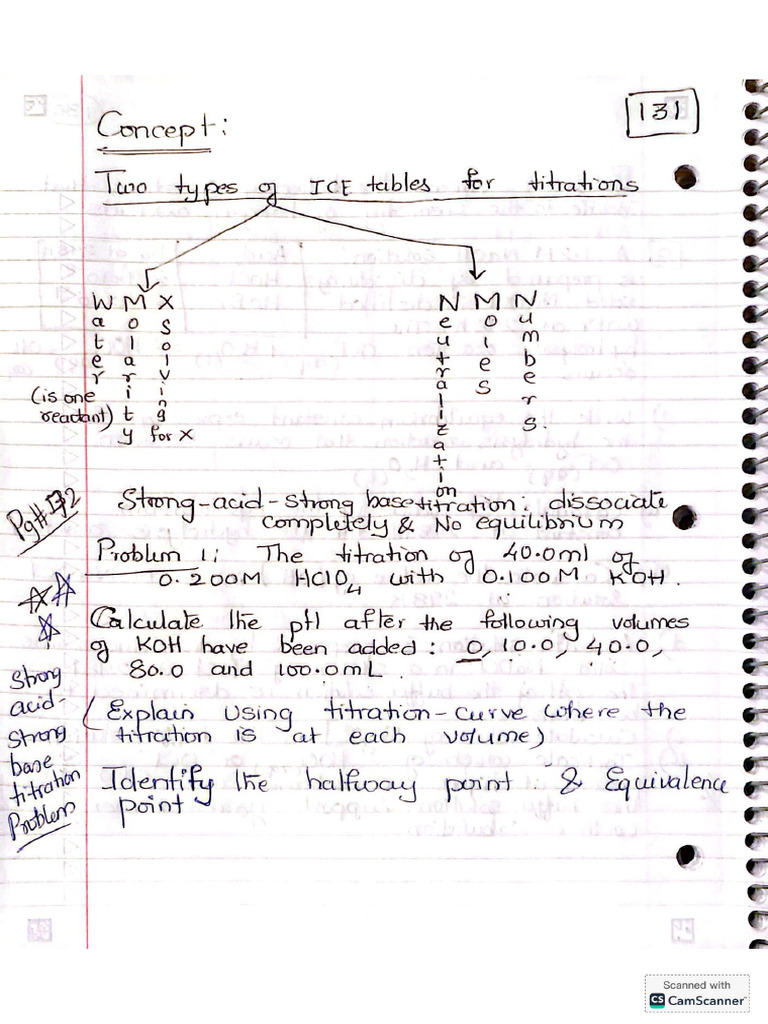 131
Concept:
Two types of ICE tables for titrations
W M X
Water Molarity Solving for X
(is one reactant)
N M N
Neutralization Moles Numbers.
Pg# 132
Strong-acid-strong base titration: dissociate
completely & No equilibrium
Problem 1: The titration of 40.0ml of
0.200M HClO4 with 0.100M KOH.
Calculate the pH after the following volumes
of KOH have been added: 0, 10.0, 40.0,
80.0 and 100.0mL.
(Explain using titration-curve where the
titration is at each volume)
Identify the halfway point & Equivalence
point
Strong
acid-
strong
base
titration
Problem
Scanned with
CS CamScanner